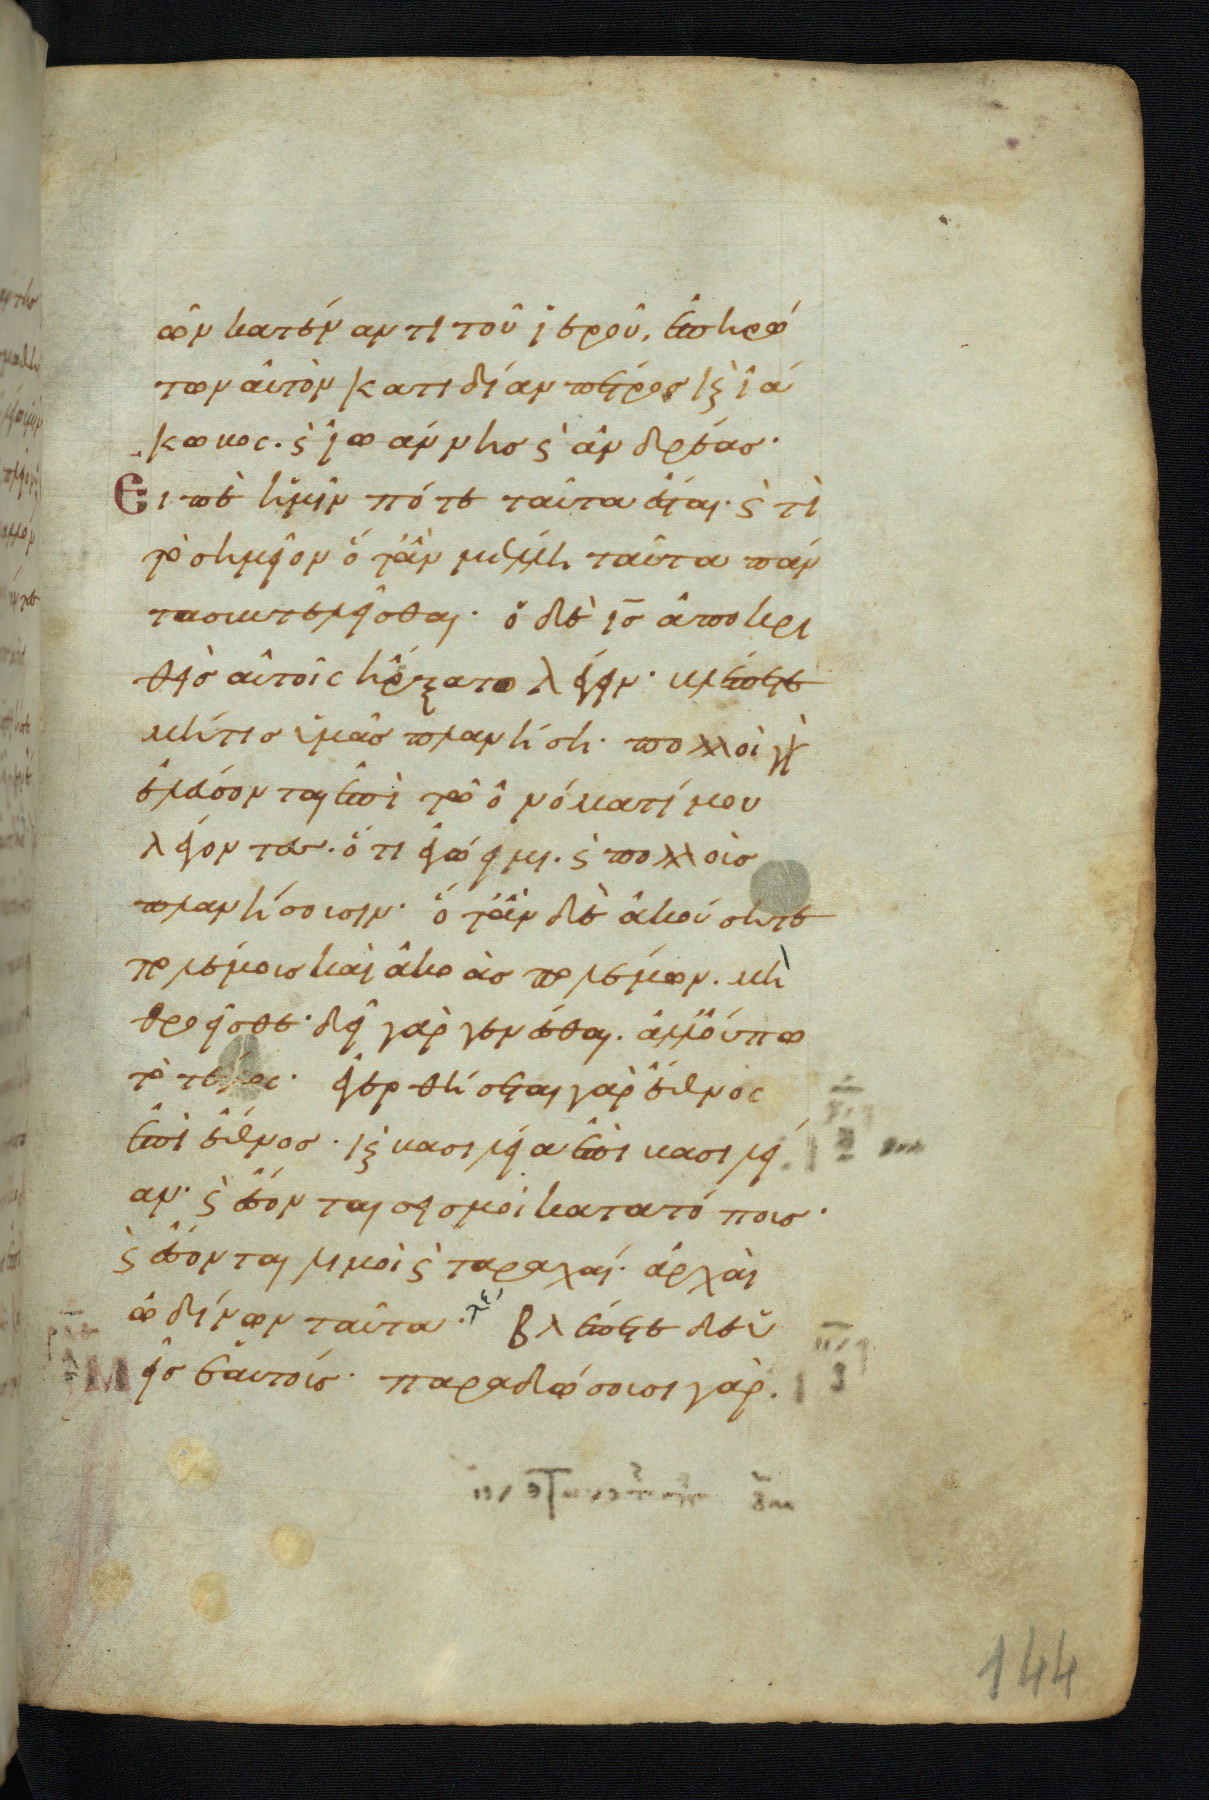 ῶν κατέναντι τοῦ ἱεροῦ. ἐπηρώ
των αὐτὸν κατιδίαν πέτρος κ ἰά
κωβος. κ ἰωάννης κ ἀνδρέας·
Εἰπὲ ἡμῖν πότε ταῦτα ἔσται. κ τί
τὸ σημεῖον ὅταν μέλλη ταῦτα πάν
τα συντελεῖσθαι· ὁ δὲ ις ἀποκρι
θεὶς αὐτοῖς ἤρξατο λέγειν· βλέπετε
μήτις ὑμᾶς πλανήση· πολλοὶ γὰρ
ἐλεύσονται ἐπὶ τῶ ὀνόματί μου
λέγοντες· ὅτι ἐγώ εἰμι. κ πολλοὺς
πλανήσουσιν· ὅταν δὲ ἀκούσητε
πολέμους καὶ ἀκοὰς πολέμων. μὴ
θροεῖσθε· δεῖ γὰρ γενέσθαι. ἀλλ οὔπω
τὸ τέλος· ἐγερθήσεται γὰρ ἔθνος
ἐπὶ ἔθνος· κ βασιλεία ἐπὶ βασιλεί
αν· κ ἔσονται σεισμοὶ κατατόπους·
κ ἔσονται λιμοὶ κ ταραχαί· ἀρχαὶ
ὠδίνων ταῦτα· τε βλέπετε δὲ ὑ
Μεῖς ἑαυτούς· παραδώσουσι γὰρ.
144